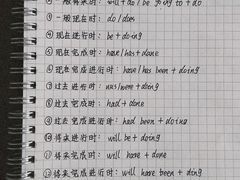 一般将来时: will + do / be going to + do
③一般现在时: do/does
④现在进行时: be + doing
⑤现在完成时: have/has + done
⑥现在完成进行时: have/has been + doing
⑦过去进行时: was/were + doing
⑧过去完成时: had + done
⑨过去完成进行时: had been + doing
⑩将来进行时: will be + doing
⑪将来完成时: will have + done
⑫将来完成进行时: will have been + doing